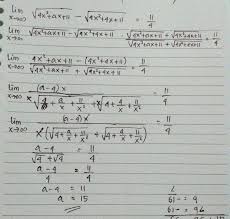 lim x→∞ √4x²+ax+11 − √4x²+4x+11 = 11/4
lim x→∞ √4x²+ax+11 − √4x²+4x+11 · √4x²+ax+11 + √4x²+4x+11 / √4x²+ax+11 + √4x²+4x+11 = 11/4
lim x→∞ 4x²+ax+11 − (4x²+4x+11) / √4x²+ax+11 + √4x²+4x+11 = 11/4
lim x→∞ (a−4)x / x√4+a/x+11/x² + x√4+4/x+11/x² = 11/4
lim x→∞ (a−4)x / x(√4+a/x+11/x² + √4+4/x+11/x²) = 11/4
a−4 / √4+√4 = 11/4
a−4 / 4 = 11/4
a−4 = 11
a = 15